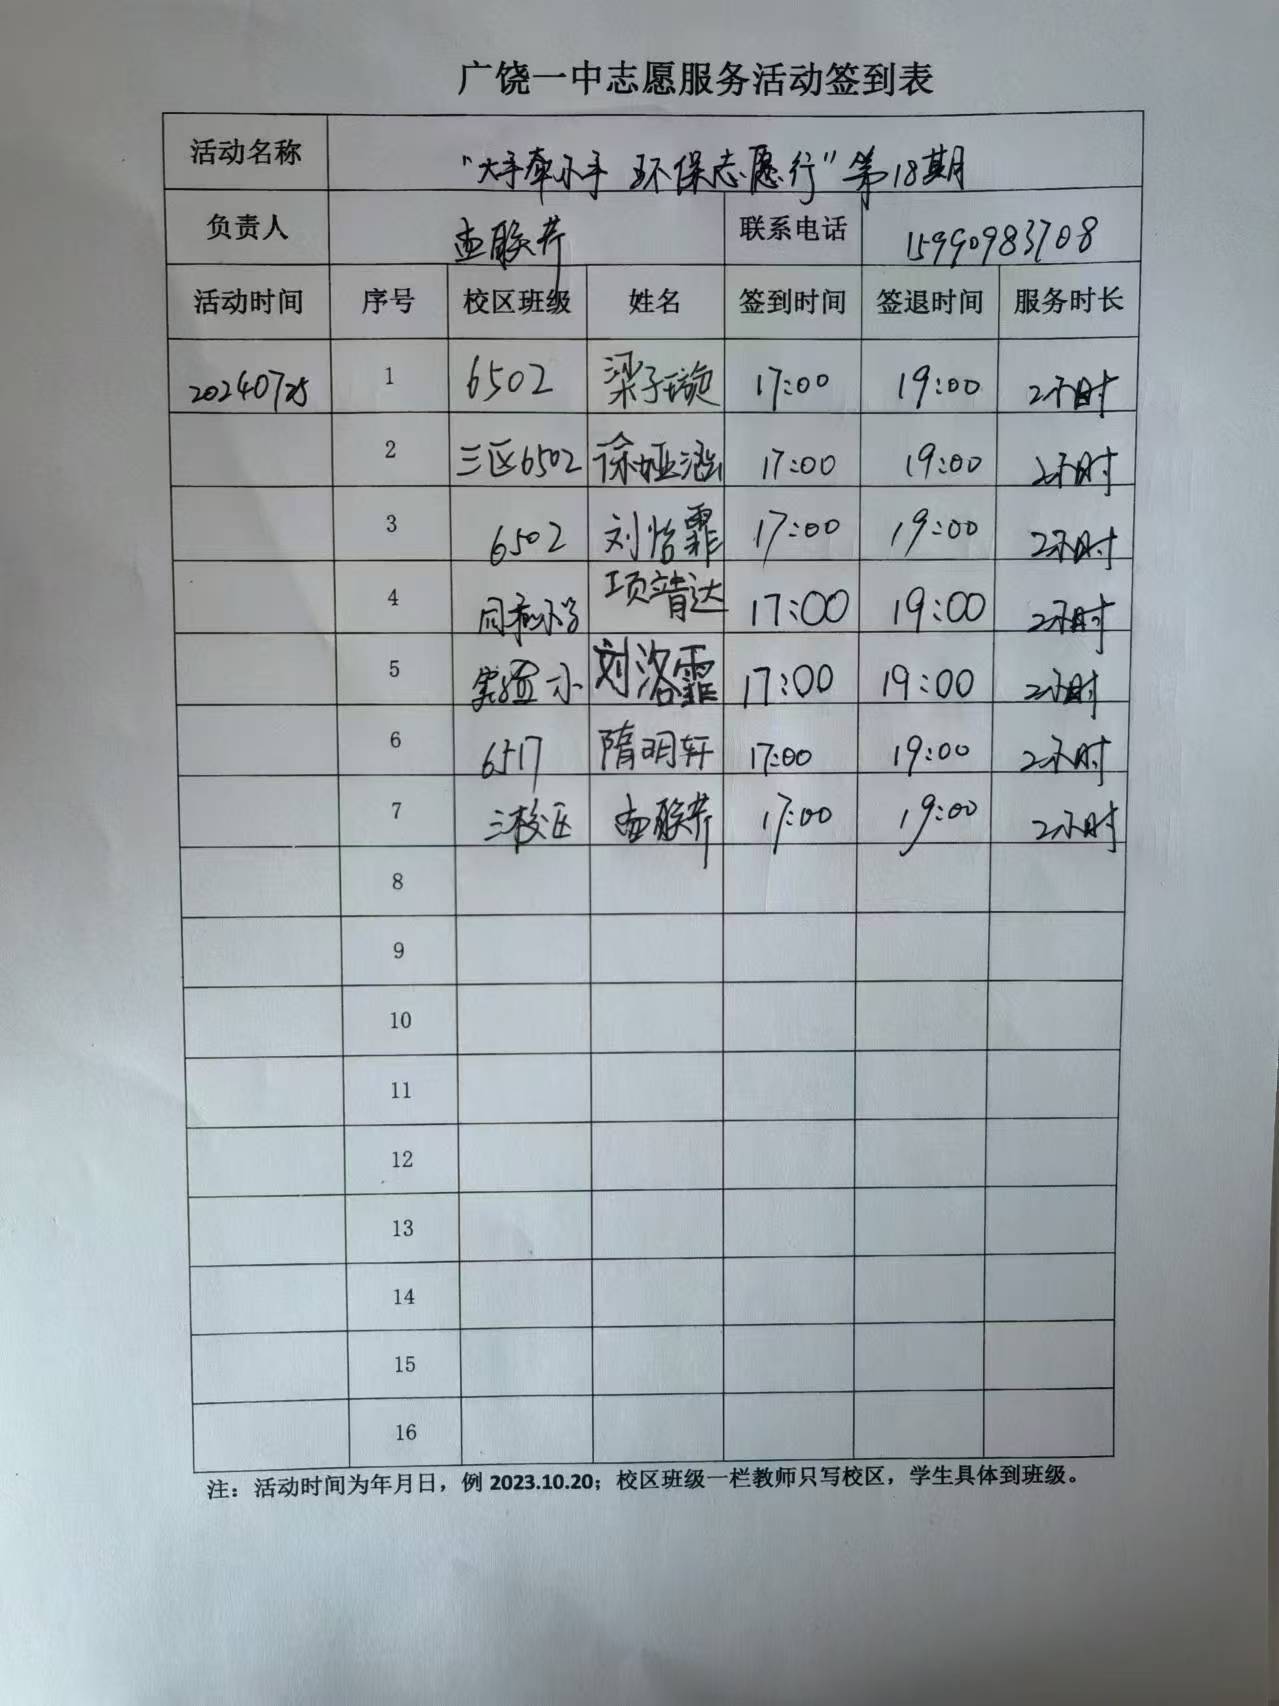 广饶一中志愿服务活动签到表
活动名称 “大手牵小手 环保志愿行”第18期
负责人 联系电话 15990983708
活动时间 序号 校区班级 姓名 签到时间 签退时间 服务时长
20240725 1 6502 梁子璇 17:00 19:00 2小时
2 三区6502 徐娅涵 17:00 19:00 2小时
3 6502 刘怡霏 17:00 19:00 2小时
4 同和小学 项靖达 17:00 19:00 2小时
5 实验小 刘洛霏 17:00 19:00 2小时
6 6517 隋明轩 17:00 19:00 2小时
7 三校区 17:00 19:00 2小时
8
9
10
11
12
13
14
15
16
注：活动时间为年月日，例 2023.10.20；校区班级一栏教师只写校区，学生具体到班级。